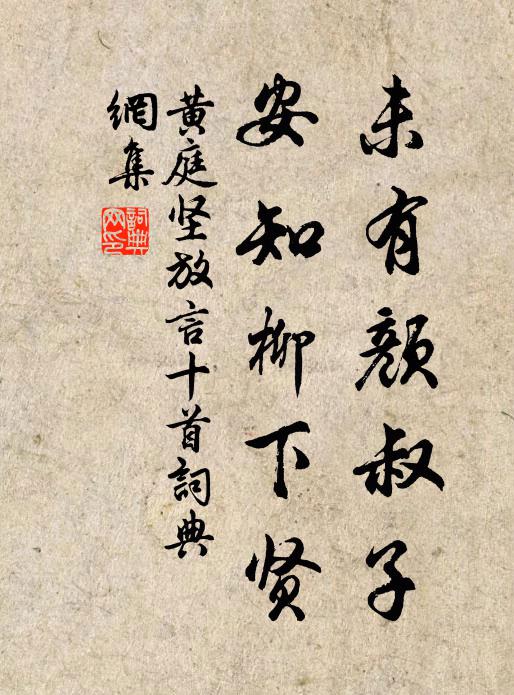 未有颜叔子
安知柳下贤
黄庭坚放言十首詞典
網集
詞典
网印